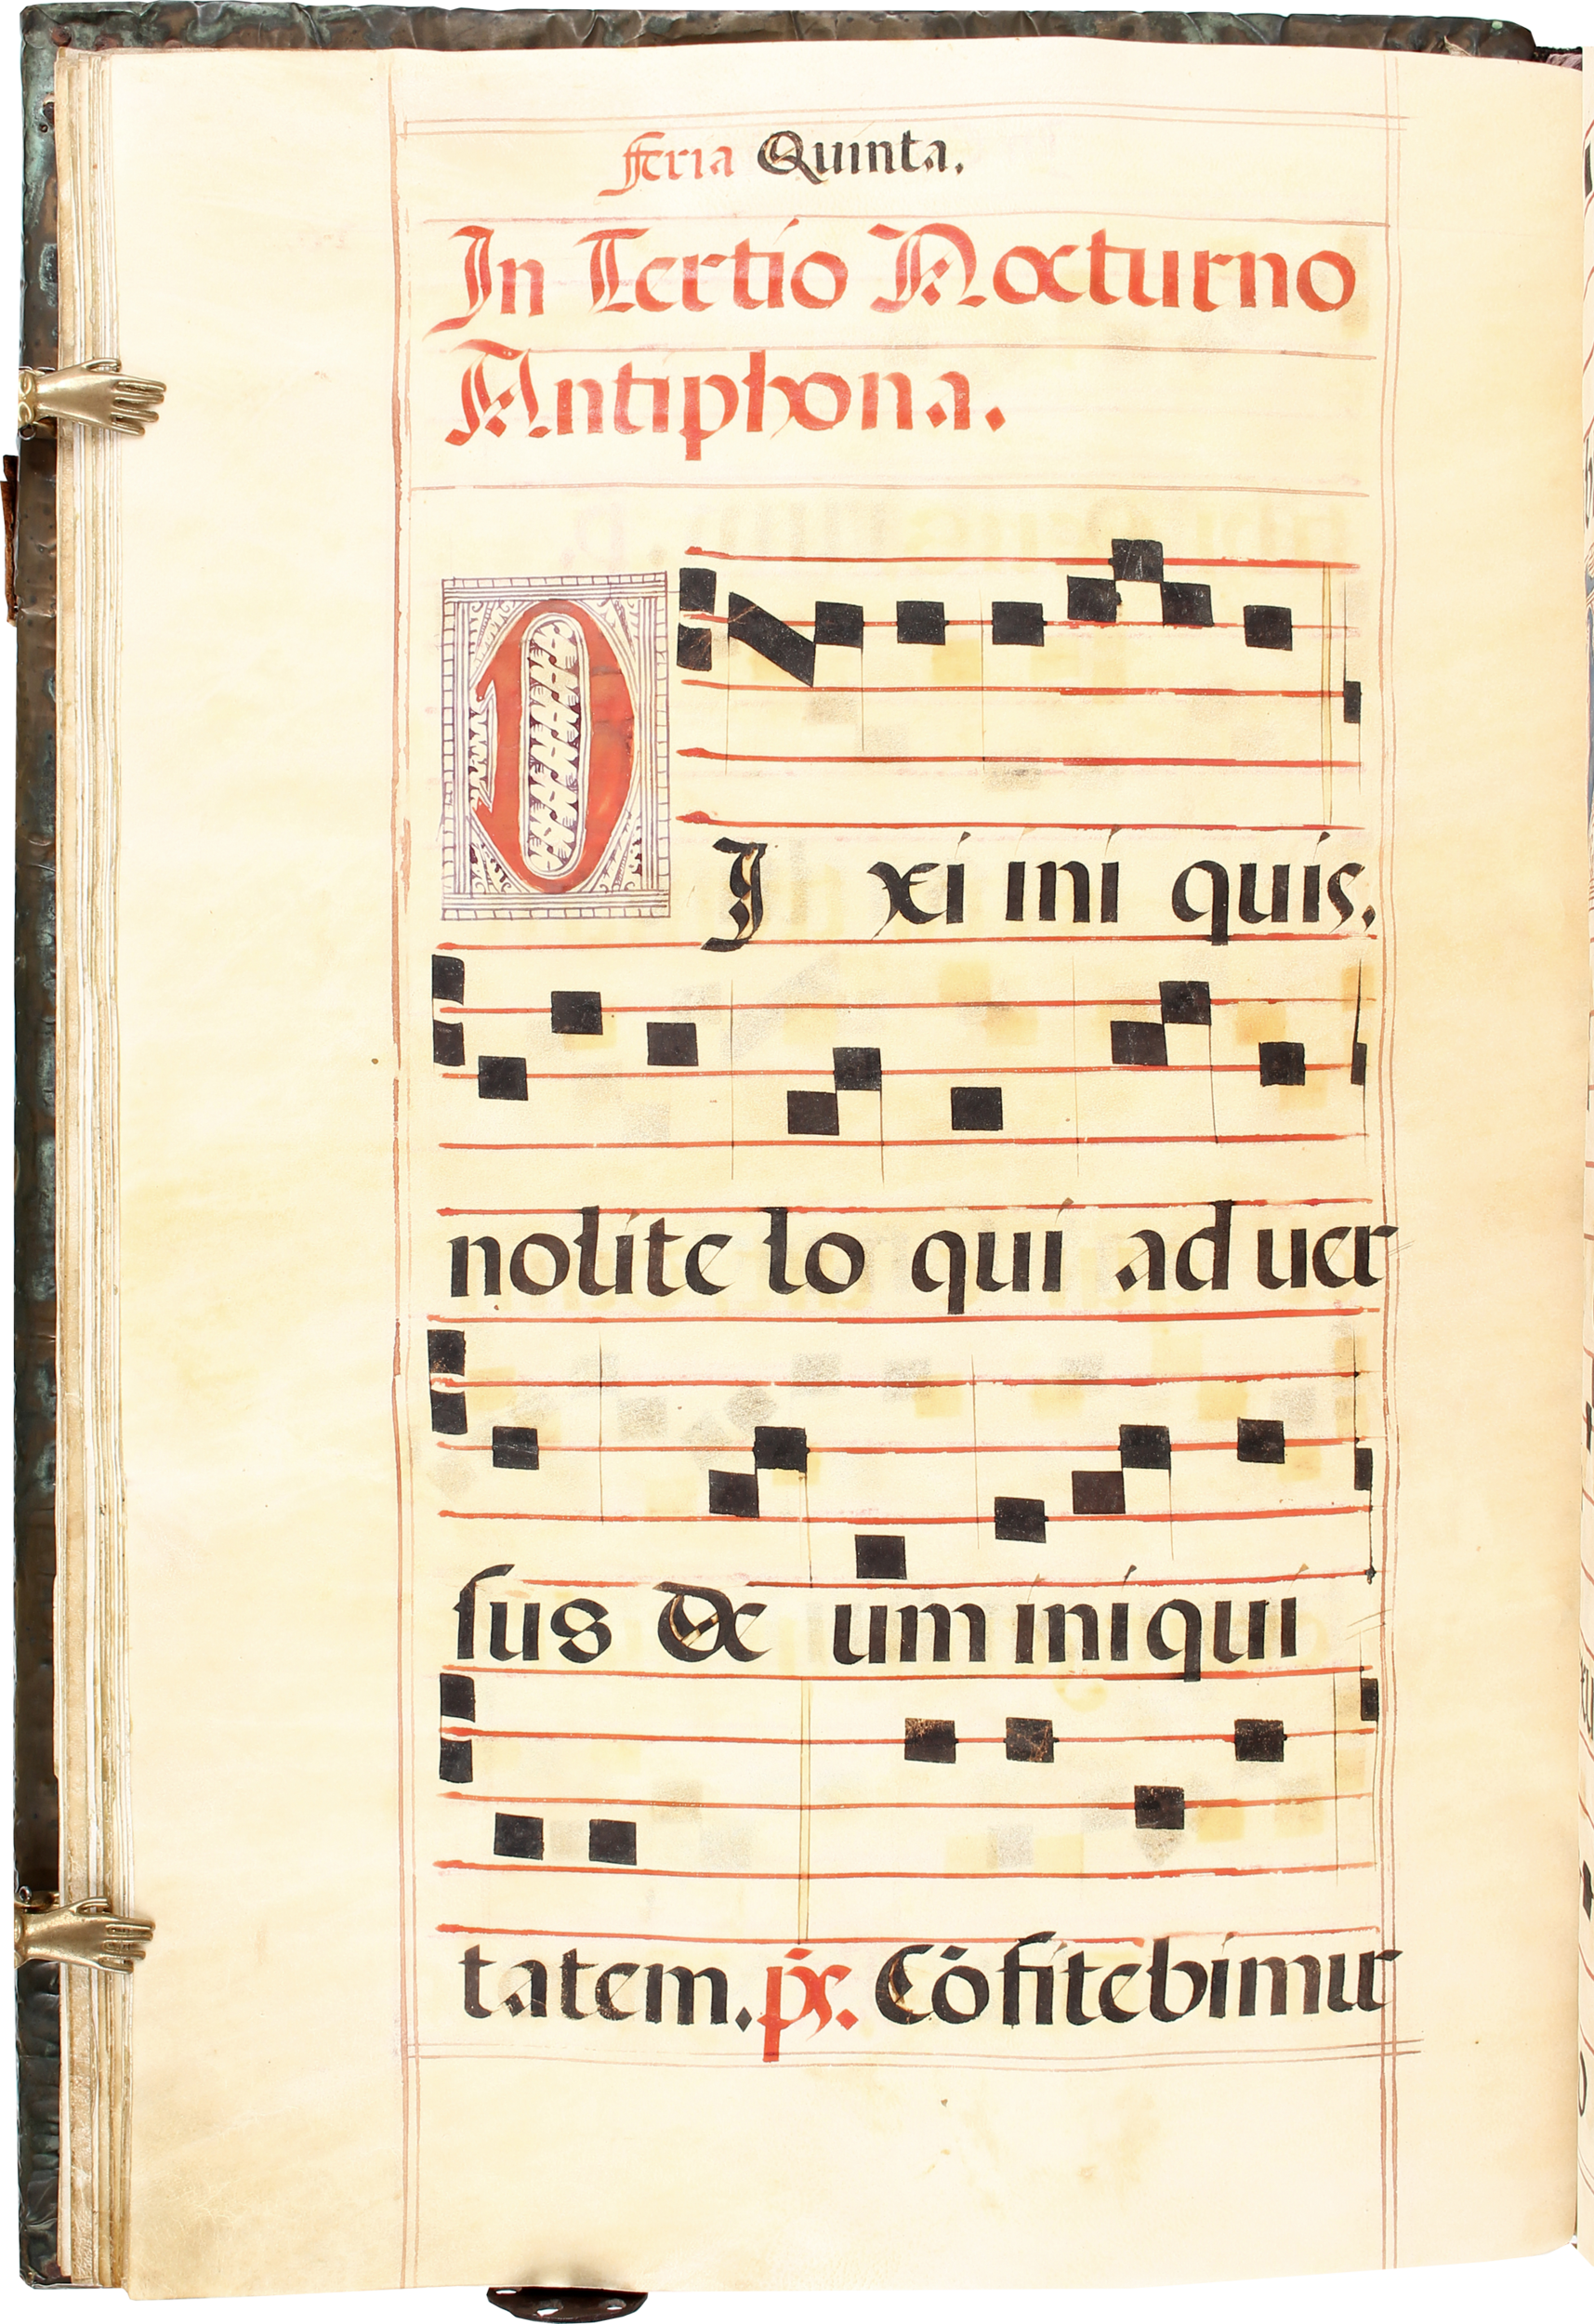 Feria Quinta.
In Tertio Nocturno
Antiphona.
DI xi ini quis.
nolite lo qui aduer
sus De um iniqui
tatem. ps. Cōfitebimur